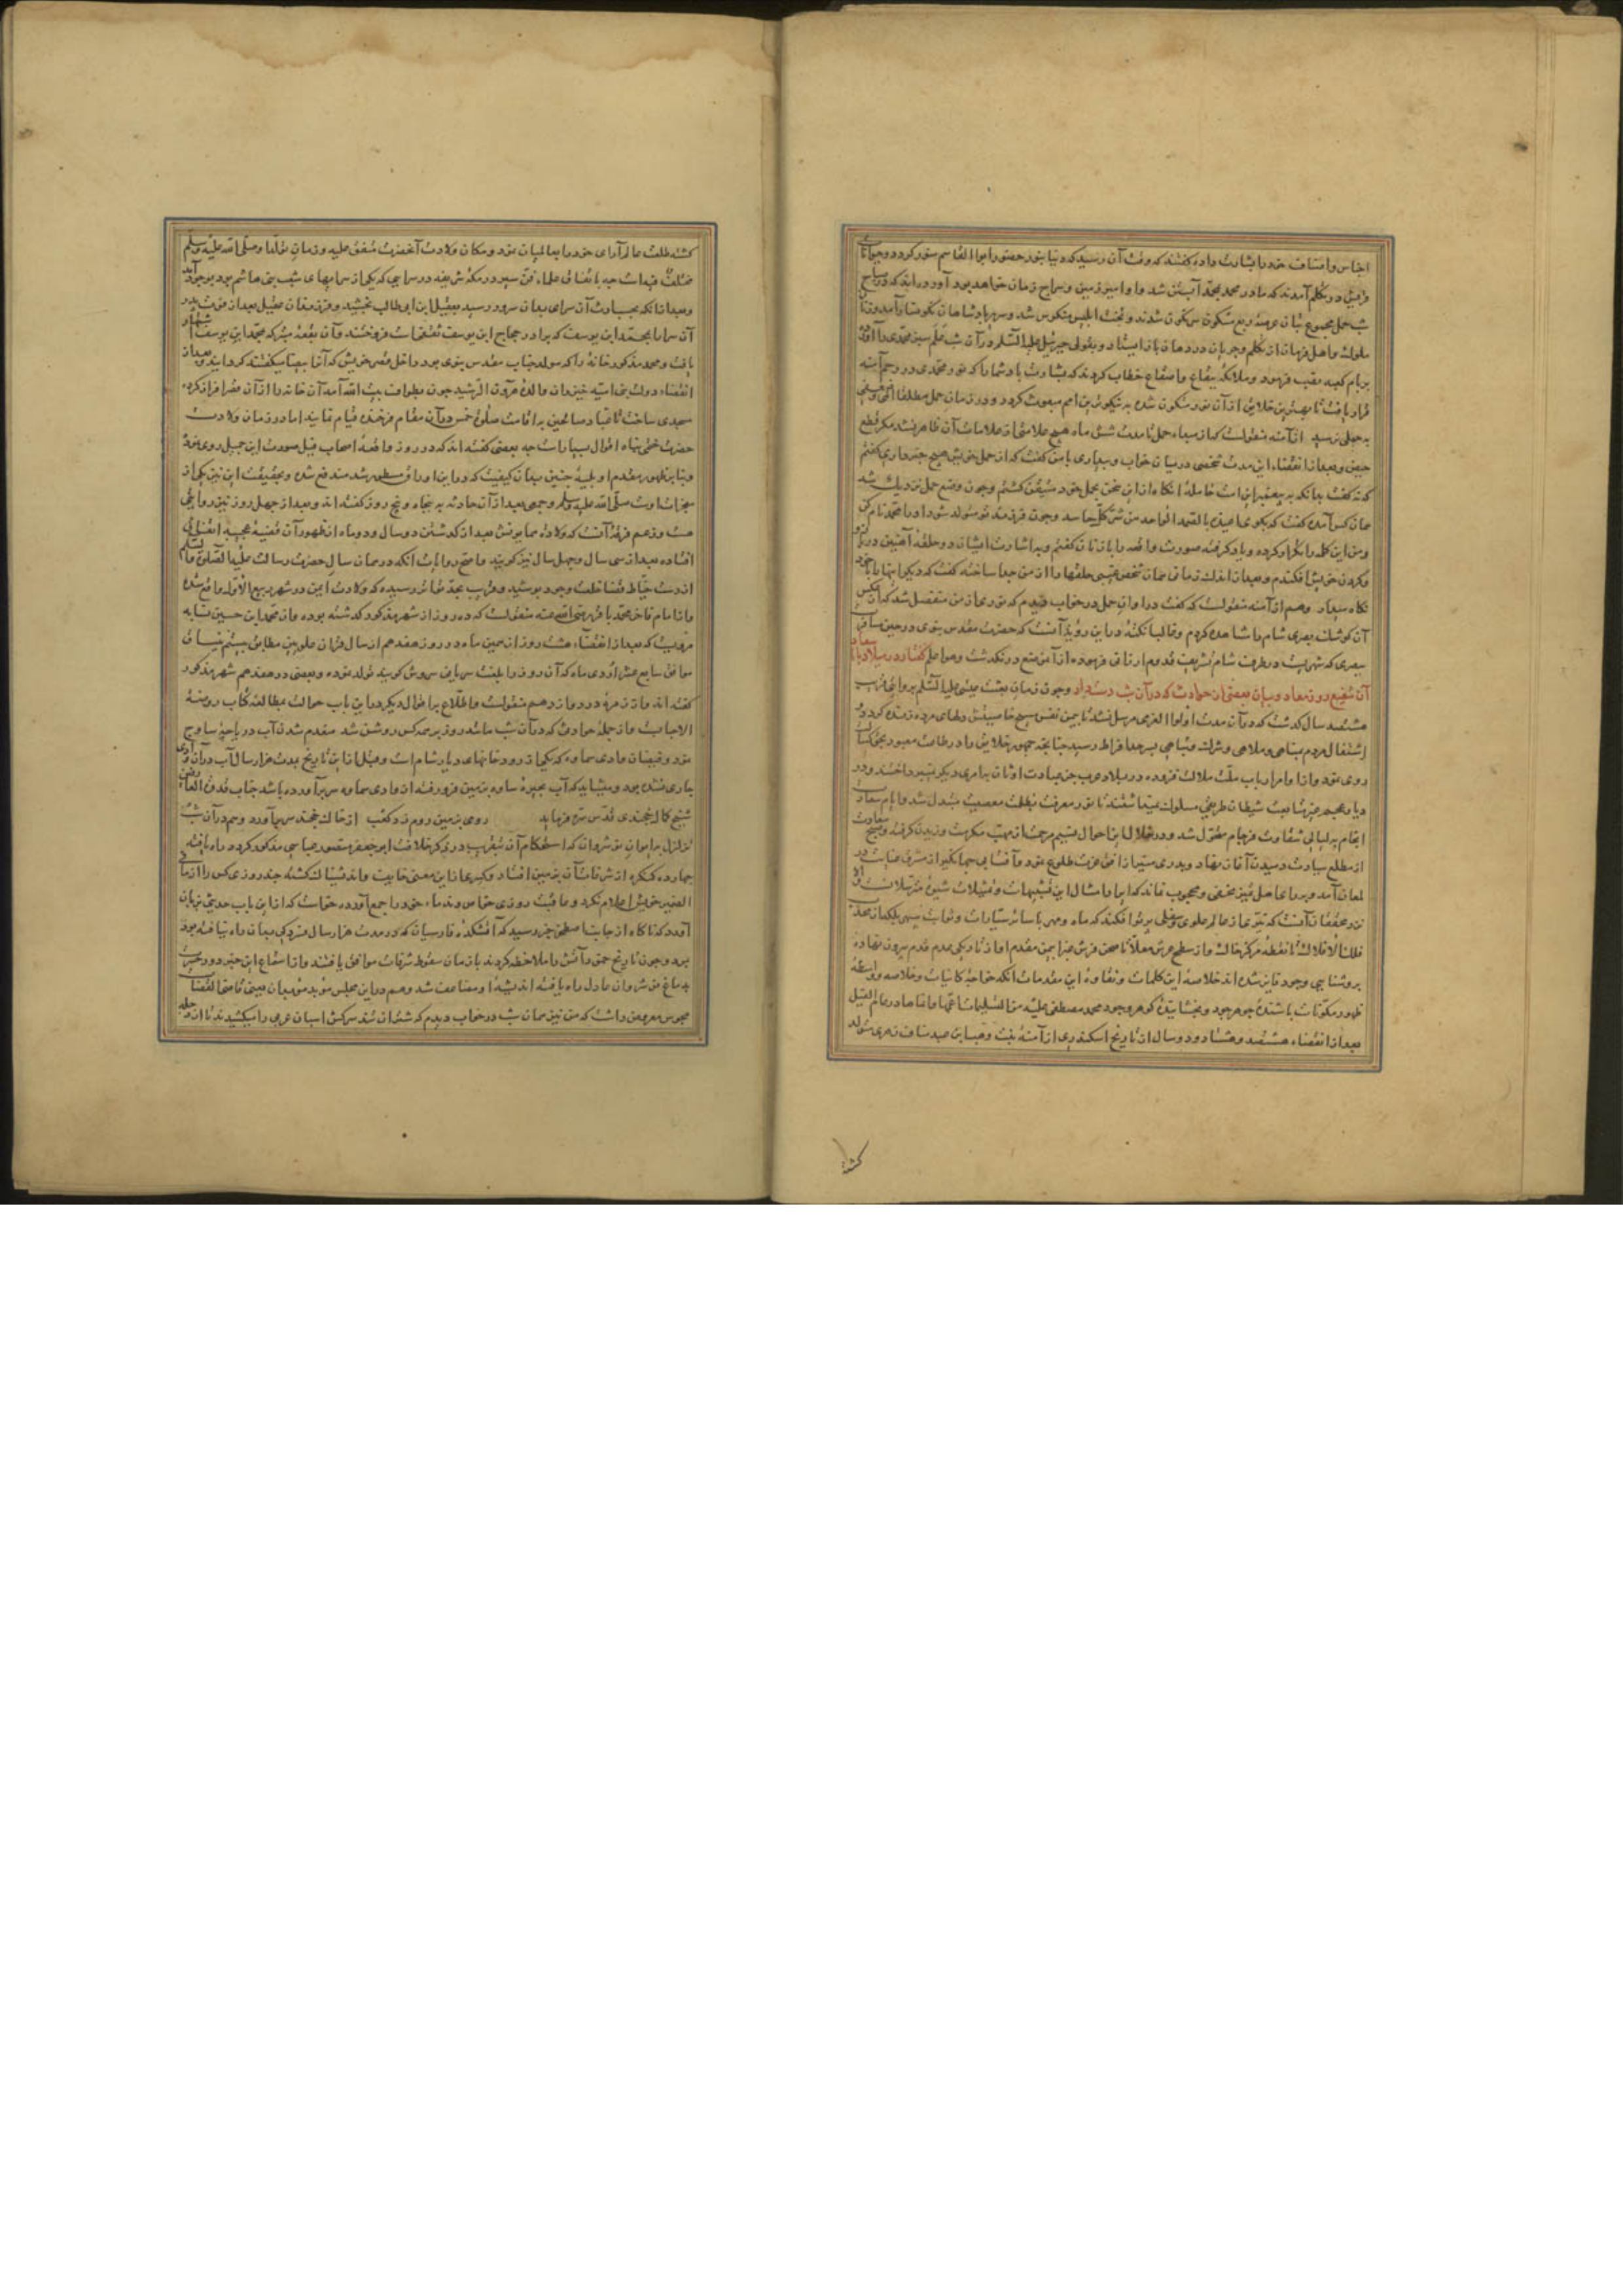 اجناس و اصناف خود را بشارت داده گفتند که وقت آن رسید که دنیا بنور حضور ابوالقاسم منور گردد و حیوانات
قریش در تکلم آمدند که مادر محمد بمحمد آبستن شد و او امیر زمین و سراج زمان خواهد بود آورده‌اند که در صباح
شب حمل مجموع بتان عرصه ربع مسکون سرنگون شدند و تخت ابلیس منکوس شد و سریر پادشاهان نگونسار آمد و زبان
ملوک و اهل فرمان از تکلم و جریان در دهان باز ایستاد و بقولی جبرئیل علیه السلم در آن شب علم سبز محمدی را آورده
بر بام کعبه نصب فرمود و ملائکه ببقاع و اصقاع خطاب کردند که بشارت باد شما را که نور محمدی در رحم آمنه
قرار یافت تا بهترین خلایق از آن نور متکون شده به نیکوترین امم مبعوث گردد و در زمان حمل مطلقا
به حملی نرسید از آمنه منقولست که از مبداء حمل تا مدت شش ماه هیچ علامتی از علامات آن ظاهر نشد مگر قطع
حیض و بعد از انقضاء این مدت شخصی در میان خواب و بیداری با من گفت که از حمل خویش هیچ خبر داری گفتم
که نه گفت بدانکه به پیغمبر این امت حاملهٔ انگاه از این سخن بحمل خود متیقن گشتم و چون وضع حمل نزدیک شد
همان کس آمده گفت که بگوی اعیذه بالصمد الواحد من شر کل حاسد و چون فرزند تو متولد شود او را محمد نام کن
و من این کلمه را تکرار کرده و یاد گرفته صورت واقعه را با زنان گفتم و به اشارت ایشان دو حلقه آهنین در
و گردن خویش افکندم و بعد از اندک زمانی همان شخص غیبی حلقها را از من جدا ساخته گفت که دیگر اینها را با خود
نگاه مدار و هم از آمنه منقولست که گفت در اوان حمل در خواب دیدم که نوری از من منفصل شد که از عکس
آن کوشک بصری شام را مشاهده کردم و غالبا نکتهٔ در این رؤیا آنست که حضرت مقدس نبوی در حین مسافرت
ببصری که شهریست در طرف شام تشریف قدوم ارزانی فرموده از آن موضع درنگذشت و هو اعلم گفتار در میلاد با سعادت
آن شفیع روز معاد و بیان بعضی از حوادث که در آن شب دست داد و چون زمان بعثت عیسی علیه السلم بروایتی قریب
ششصد سال گذشت که در آن مدت از اولوا العزمی مرسل نشد تا بیمن نفس مسیح خاصیتش دلهای مرده زنده گردد و
اشتغال مردم بمناهی و ملاهی و شرک و تباهی بسرحد افراط رسید چنانچه جمهور خلایق را در طاعت معبود بحق کساد
روی نمود و از اوامر ارباب ملت ملالت فزوده در بلاد عرب جز عبادت اوثان به امری دیگر نپرداختند و در
دیار عجم جز متابعت شیطان طریقی مسلوک نمیداشتند تا نور معرفت بظلمت معصیت مبدل شد و ایام سعادت
انجام به لیالی شقاوت فرجام محول شد و در خلال این احوال نسیم مرحمت از مهب مکرمت وزیدن گرفت و صبح سعادت
از مطلع سیادت دمیدن آغاز نهاد و بدری منیر از افق عزت طلوع نمود و آفتابی جهانگیر از مشرق عنایت در
لمعان آمد و بر رای اهل تمیز مخفی و محجوب نماند که ایراد امثال این تشبیهات و تمثیلات شیوهٔ مترسلانست و الا
نزد محققان آنست که نیری از عالم علوی و سفلی پرتو افکند که ماه و مهر با سائر سیارات و ثوابت سپهر بلکه از محدب
فلک الافلاک تا نقطه مرکز خاک و از سطح عرش معلا تا صحن فرش غبرا بیمن مقدم او از تاریکی عدم قدم بیرون نهاده
بروشنایی وجود فایز شده‌اند خلاصه این کلمات و نقاوهٔ این مقدمات آنکه خواجهٔ کاینات و خلاصه و واسطهٔ
ظهور مکونات باشندهٔ جوهر جود و بخشایندهٔ گوهر وجود محمد مصطفی علیه من التسلیمات اعمها و انماها در عام الفیل
بعد از انقضاء هشتصد و هشتاد و دو سال از تاریخ اسکندری از آمنه بنت وهب ابن عبد مناف زهری متولد
گشته
گشته طلعت عالم آرای خود را بعالمیان نمود و مکان ولادت آنحضرت متفق علیه و زمان تولد او صلی الله علیه و سلم
مختلف فیه است چه باتفاق علماء فن سیر در مکهٔ شریفه در سرایی که یکی از سراهای شعب بنی هاشم بود بوجود آمد
و بعد از آنکه بحسب ارث آن سرای بدان سرور رسید بعقیل ابن ابی طالب بخشید و فرزندان عقیل بعد از فوت پدر
آن سرا را بمحمد ابن یوسف که برادر حجاج ابن یوسف ثقفی است فروختند و آن بقعه متبرکه بمحمد ابن یوسف اشتهار
یافت و محمد مذکور خانهٔ را که مولد جناب مقدس نبوی بود داخل قصر خویش که آنرا بیضا میگفتند گردانید و بعد از
انقضاء دولت بنی امیه خیزران والدهٔ هارون الرشید چون بطواف بیت الله آمد آن خانه را از آن قصر افراز کرده
مسجدی ساخت تا عباد صالحین به اقامت صلوة خمس در آن مقام فرخنده قیام نمایند اما در زمان ولادت
حضرت ختمی پناه اقوال بسیار است چه بعضی گفته‌اند که در روز واقعهٔ اصحاب فیل صورت این جمیل روی نمود
و بنا بر ظهور مقدم او بلیهٔ چنین بدان کیفیت که در این اوراق مسطور شد مندفع شده و بحقیقت این نیز یکی از
معجزات اوست صلی الله علیه و سلم و جمعی بعد از آن حادثه به پنجاه و پنج روز گفته‌اند و بعد از چهل روز نیز روایتی
هست و زعم فرقهٔ آنست که ولادت همایونش بعد از گذشتن دو سال و دو ماه از ظهور آن قضیهٔ عجیبه اتفاق
افتاده و بعد از سی سال و چهل سال نیز گویند و اصح روایات آنکه در همان سال حضرت رسالت علیه الصلوة و السلم
از دست خیاط قضا خلعت وجود پوشید و قریب بحد تواتر رسیده که ولادت ایمن در شهر ربیع الاول واقع شده
و از امام فاخر محمد باقر رضی الله عنه منقولست که ده روز از شهر مذکور گذشته بوده و از محمد ابن حسین نسابه
مرویست که بعد از انقضاء هشت روز از همین ماه در روز هفدهم از سال قران علویین مطابق بیستم نیسان
موافق سابع عشر از دی ماه که آن روز را بلغت سریانی سروش گویند تولد نموده و بعضی در هفدهم شهر مذکور
گفته‌اند و از زمره دوازدهم منقولست و اطلاع بر اقوال دیگر در این باب حوالت بمطالعه کتاب روضة
الاحبابست و از جملهٔ حوادثی که در آن شب مانند روز بر همه کس روشن شد منعدم شدن آب دریاچهٔ ساوه
بود و فیضان وادی سماوه که یکی از رودخانهای دیار شام است و قبل از این تاریخ بمدت هزار سال آب در آن وادی
جاری نشده بود و میشاید که آب بحیرهٔ ساوه بزمین فرو رفته از وادی سماوه سر برآورده باشد جناب قدوة العارفین
شیخ کمال خجندی قدس سره فرماید روی بزمین روم نزد کعب از خاک خجند سر برآورد و هم در آن شب
تزلزل بر ایوان نوشیروان که استحکام آن بتقریب در ذکر خلافت ابو جعفر منصور عباسی مذکور گردد راه یافته
چهارده کنگره از شرفات آن بزمین افتاد و کسری از این معنی خایف و اندیشناک گشته چند روزی کس را از ما فی
الضمیر خویش اعلام نکرد و عاقبت روزی خواص و ندماء خود را جمع آورده خواست که از این باب حدیثی بزبان
آورد که ناگاه از جانب اصطخر خبر رسید که آتشکدهٔ فارسیان که در مدت هزار سال فسردگی بدان راه نیافته بود
بمرد و چون تاریخ خمود آتش را ملاحظه کردند با زمان سقوط شرفات موافق یافتند و از استماع این خبر دود حیرت
بدماغ نوشروان عادل راه یافته اندیشهٔ او مضاعف شد و هم در این مجلس موبد موبدان یعنی قاضی القضات
مجوس معروض داشت که من نیز همان شب در خواب دیدم که شتران تند سرکش اسبان عربی را میکشیدند تا از دجله